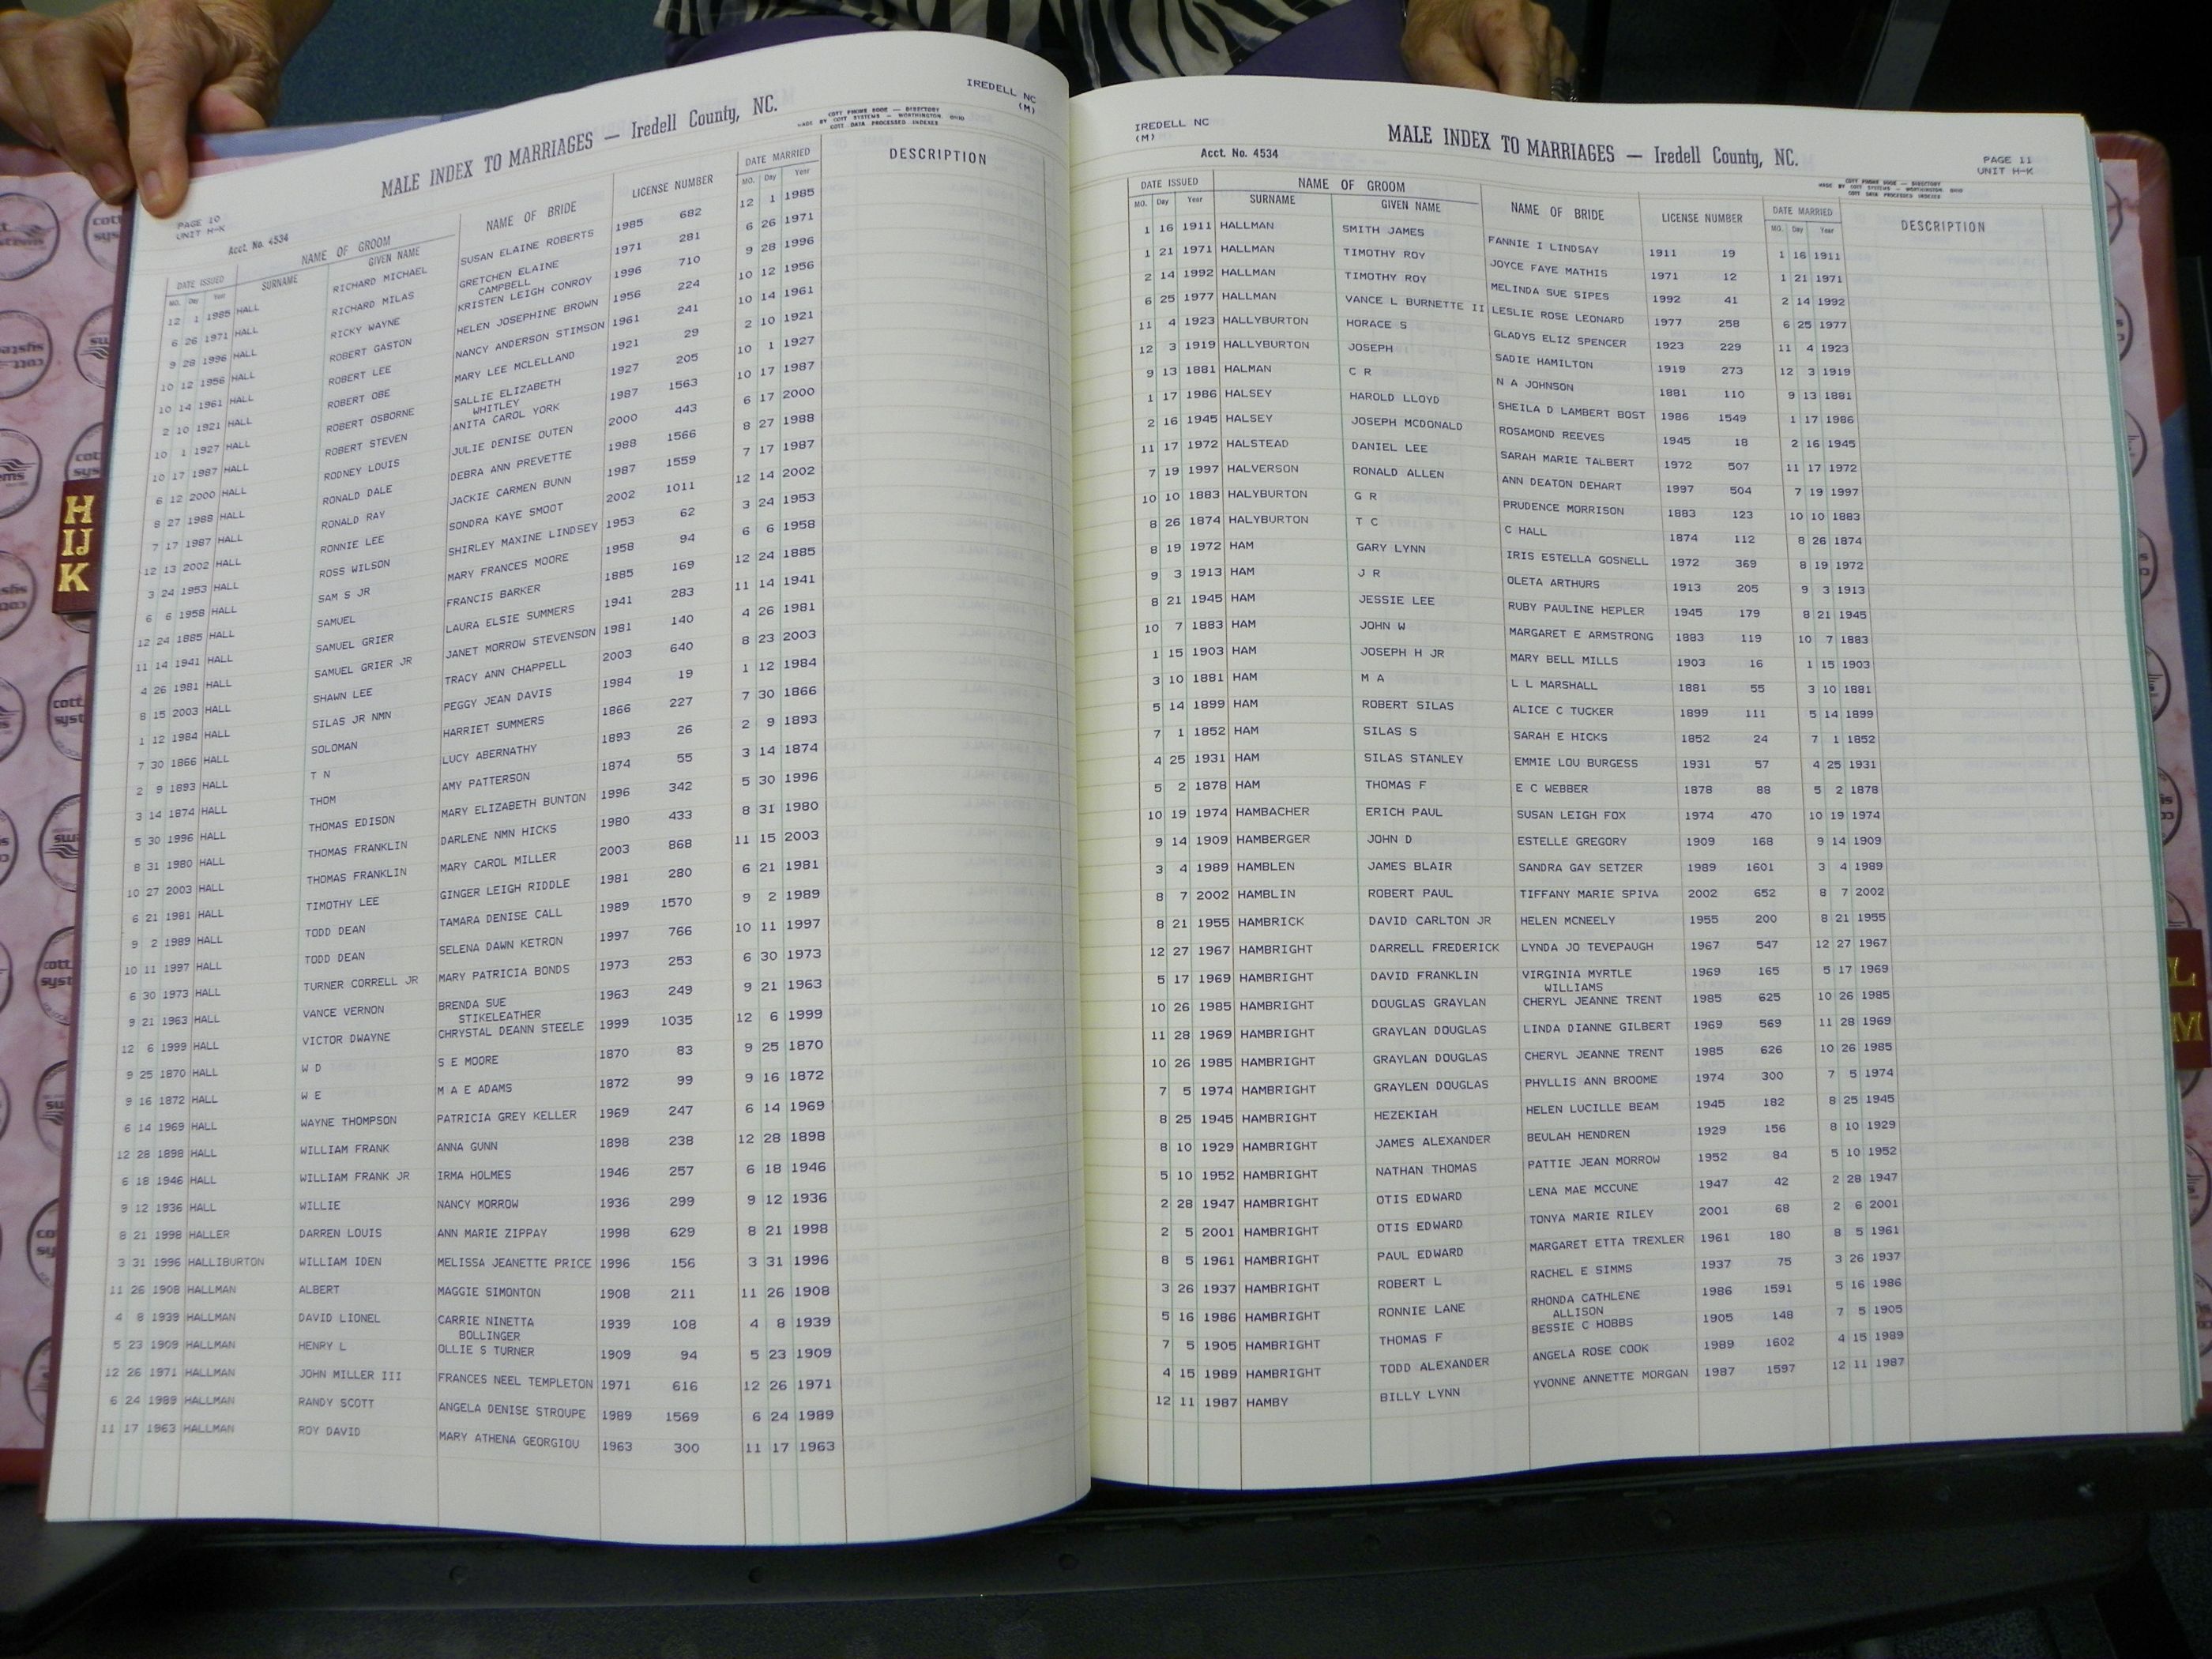 IREDELL NC
(M)
MALE INDEX TO MARRIAGES — Iredell County, NC.
COTT PHONE BOOK — DIRECTORY
MADE BY COTT SYSTEMS — WORTHINGTON, OHIO
COTT DATA PROCESSED INDEXES
PAGE 10
UNIT H-K
Acct. No. 4534
DATE ISSUED NAME OF GROOM NAME OF BRIDE LICENSE NUMBER DATE MARRIED DESCRIPTION
Mo. Day Year SURNAME GIVEN NAME MO. Day Year
12 1 1985 HALL RICHARD MICHAEL SUSAN ELAINE ROBERTS 1985 682 12 1 1985
6 26 1971 HALL RICHARD MILAS GRETCHEN ELAINE 1971 281 6 26 1971
CAMPBELL
9 28 1996 HALL RICKY WAYNE KRISTEN LEIGH CONROY 1996 710 9 28 1996
10 12 1956 HALL ROBERT GASTON HELEN JOSEPHINE BROWN 1956 224 10 12 1956
10 14 1961 HALL ROBERT LEE NANCY ANDERSON STIMSON 1961 241 10 14 1961
2 10 1921 HALL ROBERT OBE MARY LEE MCLELLAND 1921 29 2 10 1921
10 1 1927 HALL ROBERT OSBORNE SALLIE ELIZABETH 1927 205 10 1 1927
WHITLEY
10 17 1987 HALL ROBERT STEVEN ANITA CAROL YORK 1987 1563 10 17 1987
6 12 2000 HALL RODNEY LOUIS JULIE DENISE OUTEN 2000 443 6 17 2000
8 27 1988 HALL RONALD DALE DEBRA ANN PREVETTE 1988 1566 8 27 1988
7 17 1987 HALL RONALD RAY JACKIE CARMEN BUNN 1987 1559 7 17 1987
12 13 2002 HALL RONNIE LEE SONDRA KAYE SMOOT 2002 1011 12 14 2002
3 24 1953 HALL ROSS WILSON SHIRLEY MAXINE LINDSEY 1953 62 3 24 1953
6 6 1958 HALL SAM S JR MARY FRANCES MOORE 1958 94 6 6 1958
12 24 1885 HALL SAMUEL FRANCIS BARKER 1885 169 12 24 1885
11 14 1941 HALL SAMUEL GRIER LAURA ELSIE SUMMERS 1941 283 11 14 1941
4 26 1981 HALL SAMUEL GRIER JR JANET MORROW STEVENSON 1981 140 4 26 1981
8 15 2003 HALL SHAWN LEE TRACY ANN CHAPPELL 2003 640 8 23 2003
1 12 1984 HALL SILAS JR NMN PEGGY JEAN DAVIS 1984 19 1 12 1984
7 30 1866 HALL SOLOMAN HARRIET SUMMERS 1866 227 7 30 1866
2 9 1893 HALL T N LUCY ABERNATHY 1893 26 2 9 1893
3 14 1874 HALL THOM AMY PATTERSON 1874 55 3 14 1874
5 30 1996 HALL THOMAS EDISON MARY ELIZABETH BUNTON 1996 342 5 30 1996
8 31 1980 HALL THOMAS FRANKLIN DARLENE NMN HICKS 1980 433 8 31 1980
10 27 2003 HALL THOMAS FRANKLIN MARY CAROL MILLER 2003 868 11 15 2003
6 21 1981 HALL TIMOTHY LEE GINGER LEIGH RIDDLE 1981 280 6 21 1981
9 2 1989 HALL TODD DEAN TAMARA DENISE CALL 1989 1570 9 2 1989
10 11 1997 HALL TODD DEAN SELENA DAWN KETRON 1997 766 10 11 1997
6 30 1973 HALL TURNER CORRELL JR MARY PATRICIA BONDS 1973 253 6 30 1973
9 21 1963 HALL VANCE VERNON BRENDA SUE 1963 249 9 21 1963
STIKELEATHER
12 6 1999 HALL VICTOR DWAYNE CHRYSTAL DEANN STEELE 1999 1035 12 6 1999
9 25 1870 HALL W D S E MOORE 1870 83 9 25 1870
9 16 1872 HALL W E M A E ADAMS 1872 99 9 16 1872
6 14 1969 HALL WAYNE THOMPSON PATRICIA GREY KELLER 1969 247 6 14 1969
12 28 1898 HALL WILLIAM FRANK ANNA GUNN 1898 238 12 28 1898
6 18 1946 HALL WILLIAM FRANK JR IRMA HOLMES 1946 257 6 18 1946
9 12 1936 HALL WILLIE NANCY MORROW 1936 299 9 12 1936
8 21 1998 HALLER DARREN LOUIS ANN MARIE ZIPPAY 1998 629 8 21 1998
3 31 1996 HALLIBURTON WILLIAM IDEN MELISSA JEANETTE PRICE 1996 156 3 31 1996
11 26 1908 HALLMAN ALBERT MAGGIE SIMONTON 1908 211 11 26 1908
4 8 1939 HALLMAN DAVID LIONEL CARRIE NINETTA 1939 108 4 8 1939
BOLLINGER
5 23 1909 HALLMAN HENRY L OLLIE S TURNER 1909 94 5 23 1909
12 26 1971 HALLMAN JOHN MILLER III FRANCES NEEL TEMPLETON 1971 616 12 26 1971
6 24 1989 HALLMAN RANDY SCOTT ANGELA DENISE STROUPE 1989 1569 6 24 1989
11 17 1963 HALLMAN ROY DAVID MARY ATHENA GEORGIOU 1963 300 11 17 1963
IREDELL NC
(M)
MALE INDEX TO MARRIAGES — Iredell County, NC.
PAGE 11
UNIT H-K
Acct. No. 4534
COTT PHONE BOOK — DIRECTORY
MADE BY COTT SYSTEMS — WORTHINGTON, OHIO
COTT DATA PROCESSED INDEXES
DATE ISSUED NAME OF GROOM NAME OF BRIDE LICENSE NUMBER DATE MARRIED DESCRIPTION
Mo. Day Year SURNAME GIVEN NAME Mo. Day Year
1 16 1911 HALLMAN SMITH JAMES FANNIE I LINDSAY 1911 19 1 16 1911
1 21 1971 HALLMAN TIMOTHY ROY JOYCE FAYE MATHIS 1971 12 1 21 1971
2 14 1992 HALLMAN TIMOTHY ROY MELINDA SUE SIPES 1992 41 2 14 1992
6 25 1977 HALLMAN VANCE L BURNETTE II LESLIE ROSE LEONARD 1977 258 6 25 1977
11 4 1923 HALLYBURTON HORACE S GLADYS ELIZ SPENCER 1923 229 11 4 1923
12 3 1919 HALLYBURTON JOSEPH SADIE HAMILTON 1919 273 12 3 1919
9 13 1881 HALMAN C R N A JOHNSON 1881 110 9 13 1881
1 17 1986 HALSEY HAROLD LLOYD SHEILA D LAMBERT BOST 1986 1549 1 17 1986
2 16 1945 HALSEY JOSEPH MCDONALD ROSAMOND REEVES 1945 18 2 16 1945
11 17 1972 HALSTEAD DANIEL LEE SARAH MARIE TALBERT 1972 507 11 17 1972
7 19 1997 HALVERSON RONALD ALLEN ANN DEATON DEHART 1997 504 7 19 1997
10 10 1883 HALYBURTON G R PRUDENCE MORRISON 1883 123 10 10 1883
8 26 1874 HALYBURTON T C C HALL 1874 112 8 26 1874
8 19 1972 HAM GARY LYNN IRIS ESTELLA GOSNELL 1972 369 8 19 1972
9 3 1913 HAM J R OLETA ARTHURS 1913 205 9 3 1913
8 21 1945 HAM JESSIE LEE RUBY PAULINE HEPLER 1945 179 8 21 1945
10 7 1883 HAM JOHN W MARGARET E ARMSTRONG 1883 119 10 7 1883
1 15 1903 HAM JOSEPH H JR MARY BELL MILLS 1903 16 1 15 1903
3 10 1881 HAM M A L L MARSHALL 1881 55 3 10 1881
5 14 1899 HAM ROBERT SILAS ALICE C TUCKER 1899 111 5 14 1899
7 1 1852 HAM SILAS S SARAH E HICKS 1852 24 7 1 1852
4 25 1931 HAM SILAS STANLEY EMMIE LOU BURGESS 1931 57 4 25 1931
5 2 1878 HAM THOMAS F E C WEBBER 1878 88 5 2 1878
10 19 1974 HAMBACHER ERICH PAUL SUSAN LEIGH FOX 1974 470 10 19 1974
9 14 1909 HAMBERGER JOHN D ESTELLE GREGORY 1909 168 9 14 1909
3 4 1989 HAMBLEN JAMES BLAIR SANDRA GAY SETZER 1989 1601 3 4 1989
8 7 2002 HAMBLIN ROBERT PAUL TIFFANY MARIE SPIVA 2002 652 8 7 2002
8 21 1955 HAMBRICK DAVID CARLTON JR HELEN MCNEELY 1955 200 8 21 1955
12 27 1967 HAMBRIGHT DARRELL FREDERICK LYNDA JO TEVEPAUGH 1967 547 12 27 1967
5 17 1969 HAMBRIGHT DAVID FRANKLIN VIRGINIA MYRTLE 1969 165 5 17 1969
WILLIAMS
10 26 1985 HAMBRIGHT DOUGLAS GRAYLAN CHERYL JEANNE TRENT 1985 625 10 26 1985
11 28 1969 HAMBRIGHT GRAYLAN DOUGLAS LINDA DIANNE GILBERT 1969 569 11 28 1969
10 26 1985 HAMBRIGHT GRAYLAN DOUGLAS CHERYL JEANNE TRENT 1985 626 10 26 1985
7 5 1974 HAMBRIGHT GRAYLEN DOUGLAS PHYLLIS ANN BROOME 1974 300 7 5 1974
8 25 1945 HAMBRIGHT HEZEKIAH HELEN LUCILLE BEAM 1945 182 8 25 1945
8 10 1929 HAMBRIGHT JAMES ALEXANDER BEULAH HENDREN 1929 156 8 10 1929
5 10 1952 HAMBRIGHT NATHAN THOMAS PATTIE JEAN MORROW 1952 84 5 10 1952
2 28 1947 HAMBRIGHT OTIS EDWARD LENA MAE MCCUNE 1947 42 2 28 1947
2 5 2001 HAMBRIGHT OTIS EDWARD TONYA MARIE RILEY 2001 68 2 6 2001
8 5 1961 HAMBRIGHT PAUL EDWARD MARGARET ETTA TREXLER 1961 180 8 5 1961
3 26 1937 HAMBRIGHT ROBERT L RACHEL E SIMMS 1937 75 3 26 1937
5 16 1986 HAMBRIGHT RONNIE LANE RHONDA CATHLENE 1986 1591 5 16 1986
ALLISON
7 5 1905 HAMBRIGHT THOMAS F BESSIE C HOBBS 1905 148 7 5 1905
4 15 1989 HAMBRIGHT TODD ALEXANDER ANGELA ROSE COOK 1989 1602 4 15 1989
12 11 1987 HAMBY BILLY LYNN YVONNE ANNETTE MORGAN 1987 1597 12 11 1987
H
IJ
K
L
M